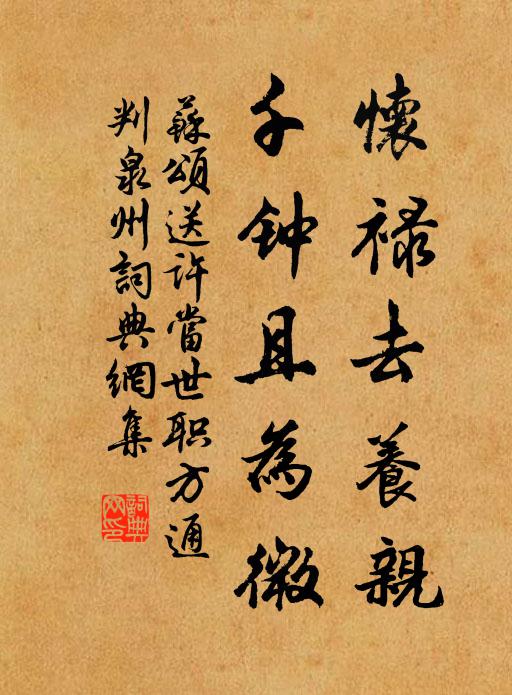 懷禄去養親
千钟且為微
蘇頌送許當世职方通
判泉州詞典網集
詞典
网印